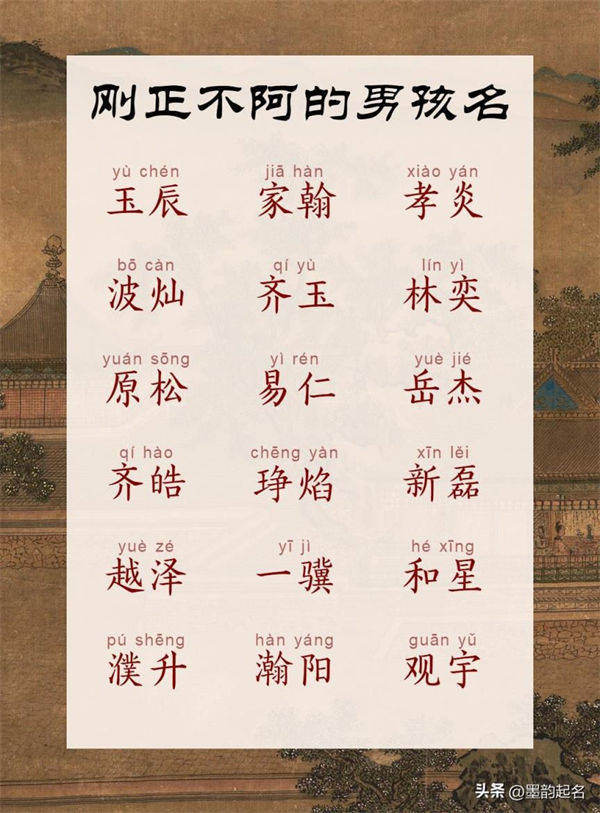 刚正不阿的男孩名
yù chén jiā hàn xiào yán
玉辰 家翰 孝炎
bō càn qí yù lín yì
波灿 齐玉 林奕
yuán sōng yì rén yuè jié
原松 易仁 岳杰
qí hào chēng yàn xīn lěi
齐皓 琤焰 新磊
yuè zé yī jì hé xīng
越泽 一骥 和星
pú shēng hàn yáng guān yǔ
濮升 瀚阳 观宇
头条 @墨韵起名